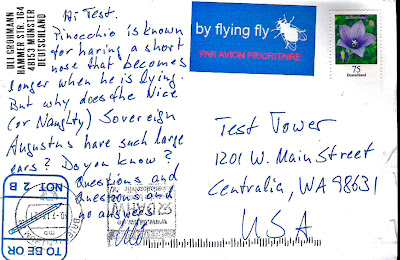 ULI GROHMANN
HAMMER STR. 164
48153 MÜNSTER
DEUTSCHLAND
Hi Test.
Pinocchio is known
for having a short
nose that becomes
longer when he is lying.
But why does the Nice
(or Naughty) Sovereign
Augustus have such large
ears? Do you know?
Questions and
Questions and
no answers
Uli
TO BE OR
NOT 2 B
by flying fly
PAR AVION PRIORITAIRE
75
Deutschland
Test Tower
1201 W. Main Street
Centralia, WA 98631
USA